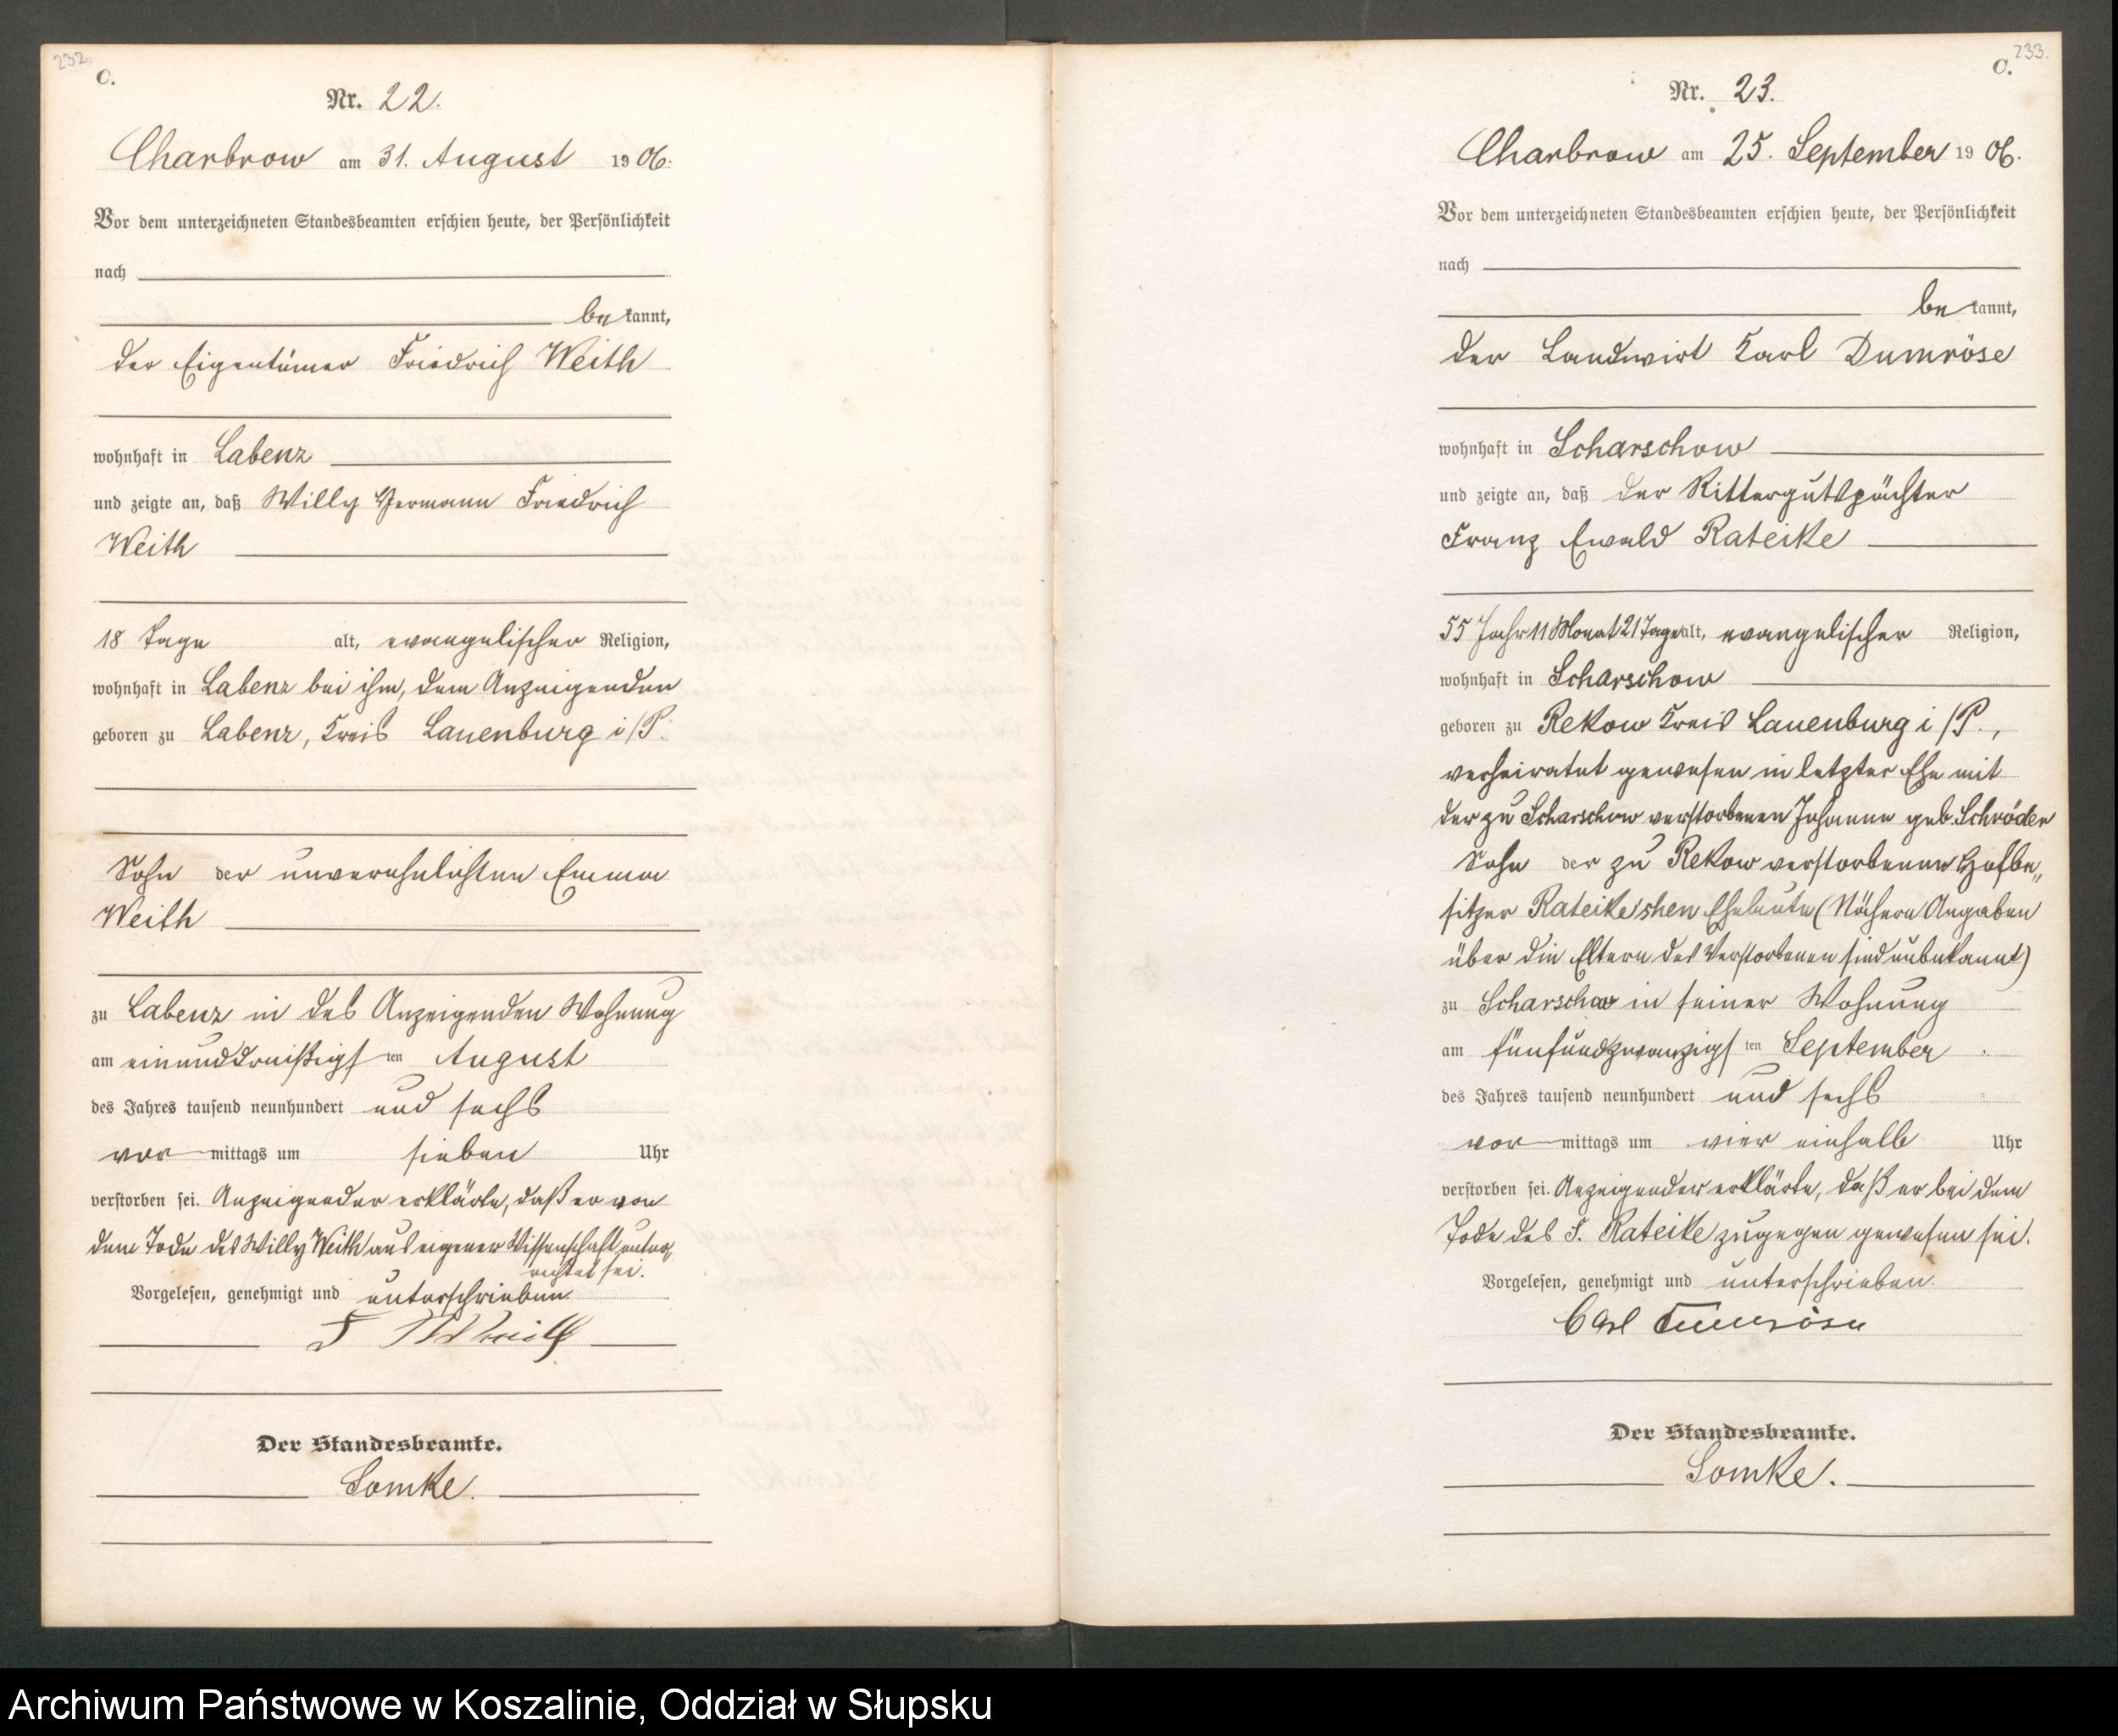 232.
C.
Nr. 22.
Charbrow am 31. August 1906.
Vor dem unterzeichneten Standesbeamten erschien heute, der Persönlichkeit
nach
bekannt,
der Eigentümer Friedrich Weith
wohnhaft in Labenz
und zeigte an, daß Willy Hermann Friedrich
Weith
18 Tage alt, evangelischer Religion,
wohnhaft in Labenz bei ihm, dem Anzeigenden
geboren zu Labenz, Kreis Lauenburg i/P.
Sohn der unverehelichten Emma
Weith
zu Labenz in des Anzeigenden Wohnung
am einunddreißigsten August
des Jahres tausend neunhundert und sechs
vormittags um sieben Uhr
verstorben sei. Anzeigender erklärte, daß er von
dem Tode des Willy Weith aus eigener Wissenschaft unter„
richtet sei.
Vorgelesen, genehmigt und unterschrieben
F Weith
Der Standesbeamte.
Lomke.
233.
C.
Nr. 23.
Charbrow am 25. September 1906.
Vor dem unterzeichneten Standesbeamten erschien heute, der Persönlichkeit
nach
bekannt,
der Landwirt Karl Dumröse
wohnhaft in Scharschow
und zeigte an, daß der Rittergutspächter
Franz Ewald Rateike
55 Jahr 11 Monat 21 Tage alt, evangelischer Religion,
wohnhaft in Scharschow
geboren zu Rekow Kreis Lauenburg i/P.,
verheiratet gewesen in letzter Ehe mit
der zu Scharschow verstorbenen Johanne geb. Schröder
Sohn der zu Rekow verstorbenen Hofbe„
sitzer Rateike'shen Eheleute (Nähere Angaben
über die Eltern des Verstorbenen sind unbekannt)
zu Scharschow in seiner Wohnung
am fünfundzwanzigsten September
des Jahres tausend neunhundert und sechs
vormittags um vier einhalb Uhr
verstorben sei. Anzeigender erklärte, daß er bei dem
Tode des F. Rateike zugegen gewesen sei.
Vorgelesen, genehmigt und unterschrieben.
Carl Dumröse
Der Standesbeamte.
Lomke.
Archiwum Państwowe w Koszalinie, Oddział w Słupsku